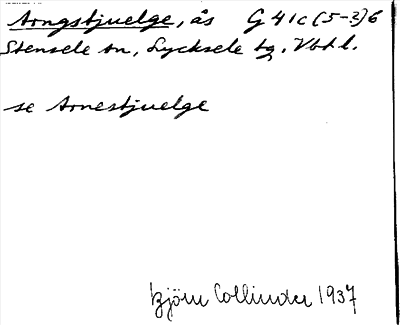 Arngstjuelge, ås G 41c(5-3)6
Stensele sn, Lycksele tg. Vbtl.
se Arnestjuelge
Björn Collinder 1937